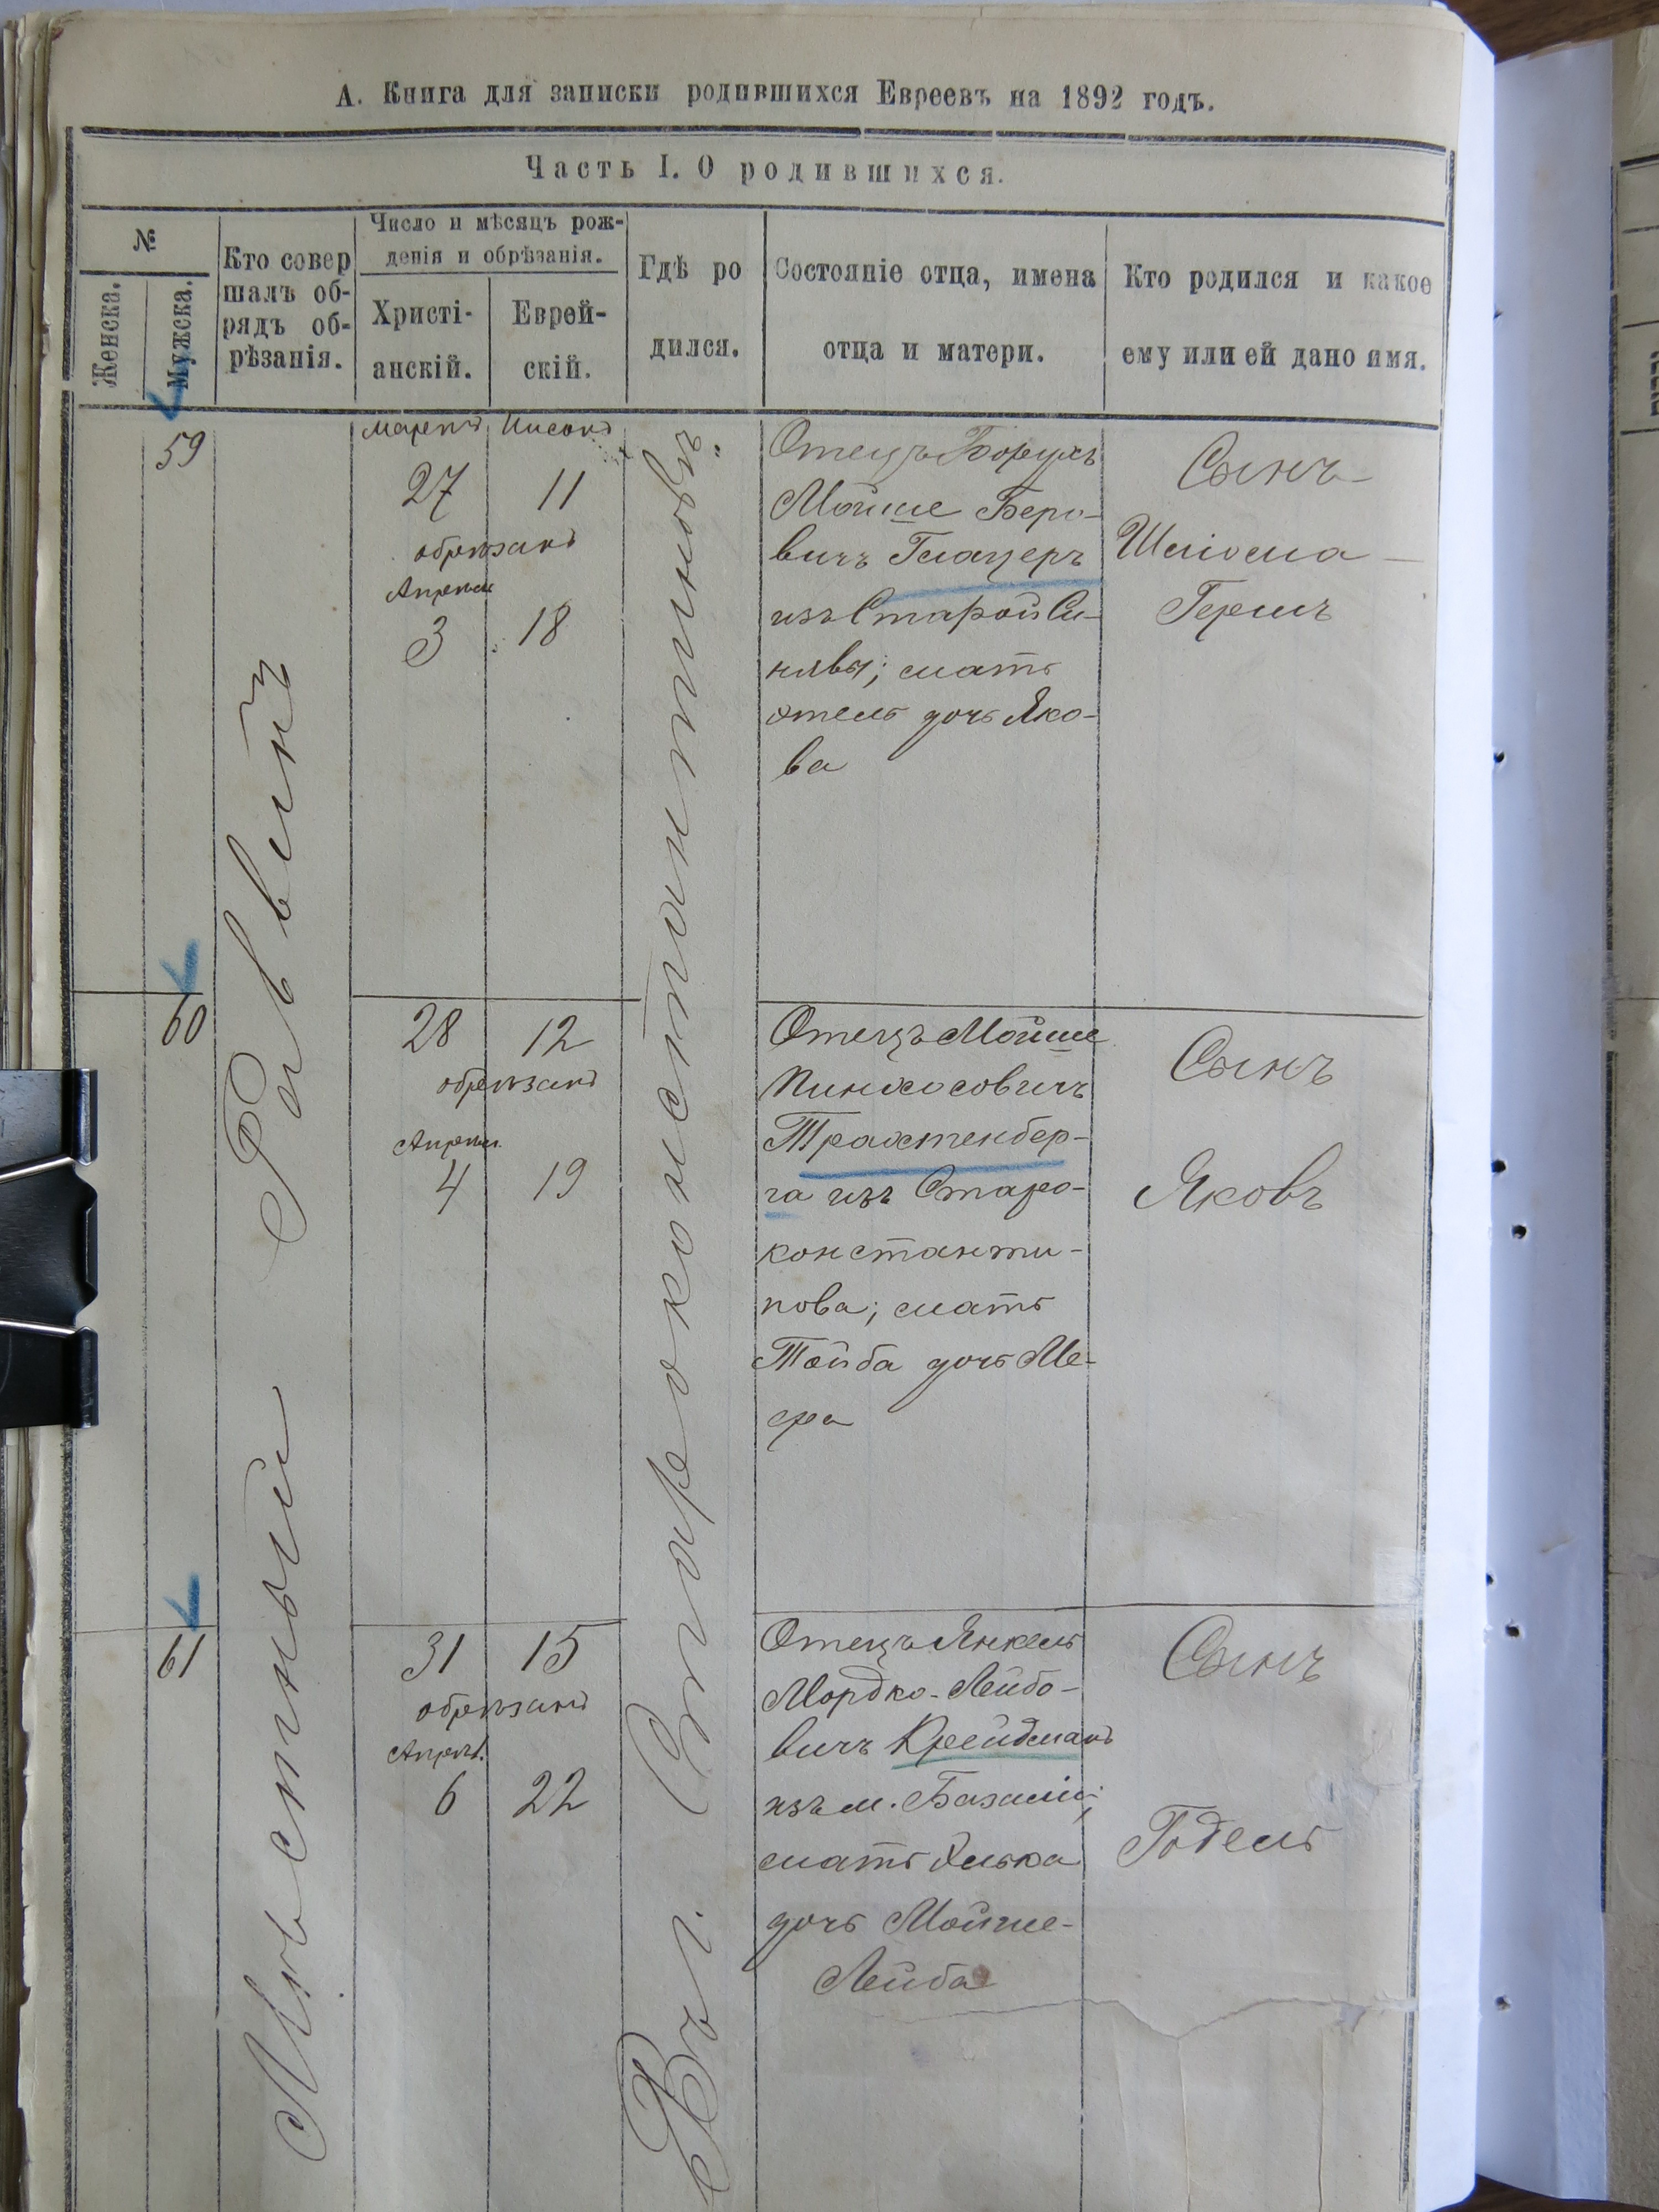 А. Книга для записки родившихся Евреевъ на 1892 годъ.
Часть I. О родившихся.
№
Женска.
Мужска.
Кто совер
шалъ об-
рядъ об-
рѣзанія.
Число и мѣсяцъ рож-
денія и обрѣзанія.
Христі-
анскій.
Еврей-
скій.
Гдѣ ро
дился.
Состояніе отца, имена
отца и матери.
Кто родился и какое
ему или ей дано имя.
Мѣстный Раввинъ
Въ г. Староконстантиновѣ
59
Мартъ Нисонъ
27 11
обрѣзанъ
Апрѣля
3 18
Отецъ Борухъ
Мойше Беро-
вичъ Глазеръ
изъ Старой Си-
нявы; мать
этель дочь Яко-
ва
Сынъ
Шлiома
Гершъ
60
28 12
обрѣзанъ
Апрѣля
4 19
Отецъ Мойше
Пинхосовичъ
Трахтенбер-
га изъ Старо-
константи-
нова; мать
Тойба дочь Ме-
ера
Сынъ
Яковъ
61
31 15
обрѣзанъ
Апрѣл.
6 22
Отецъ Янкель
Мордко-Лейбо-
вичъ Крейдманъ
изъ м. Базаліи;
мать
дочь Мойше-
Лейба
Сынъ
Годель